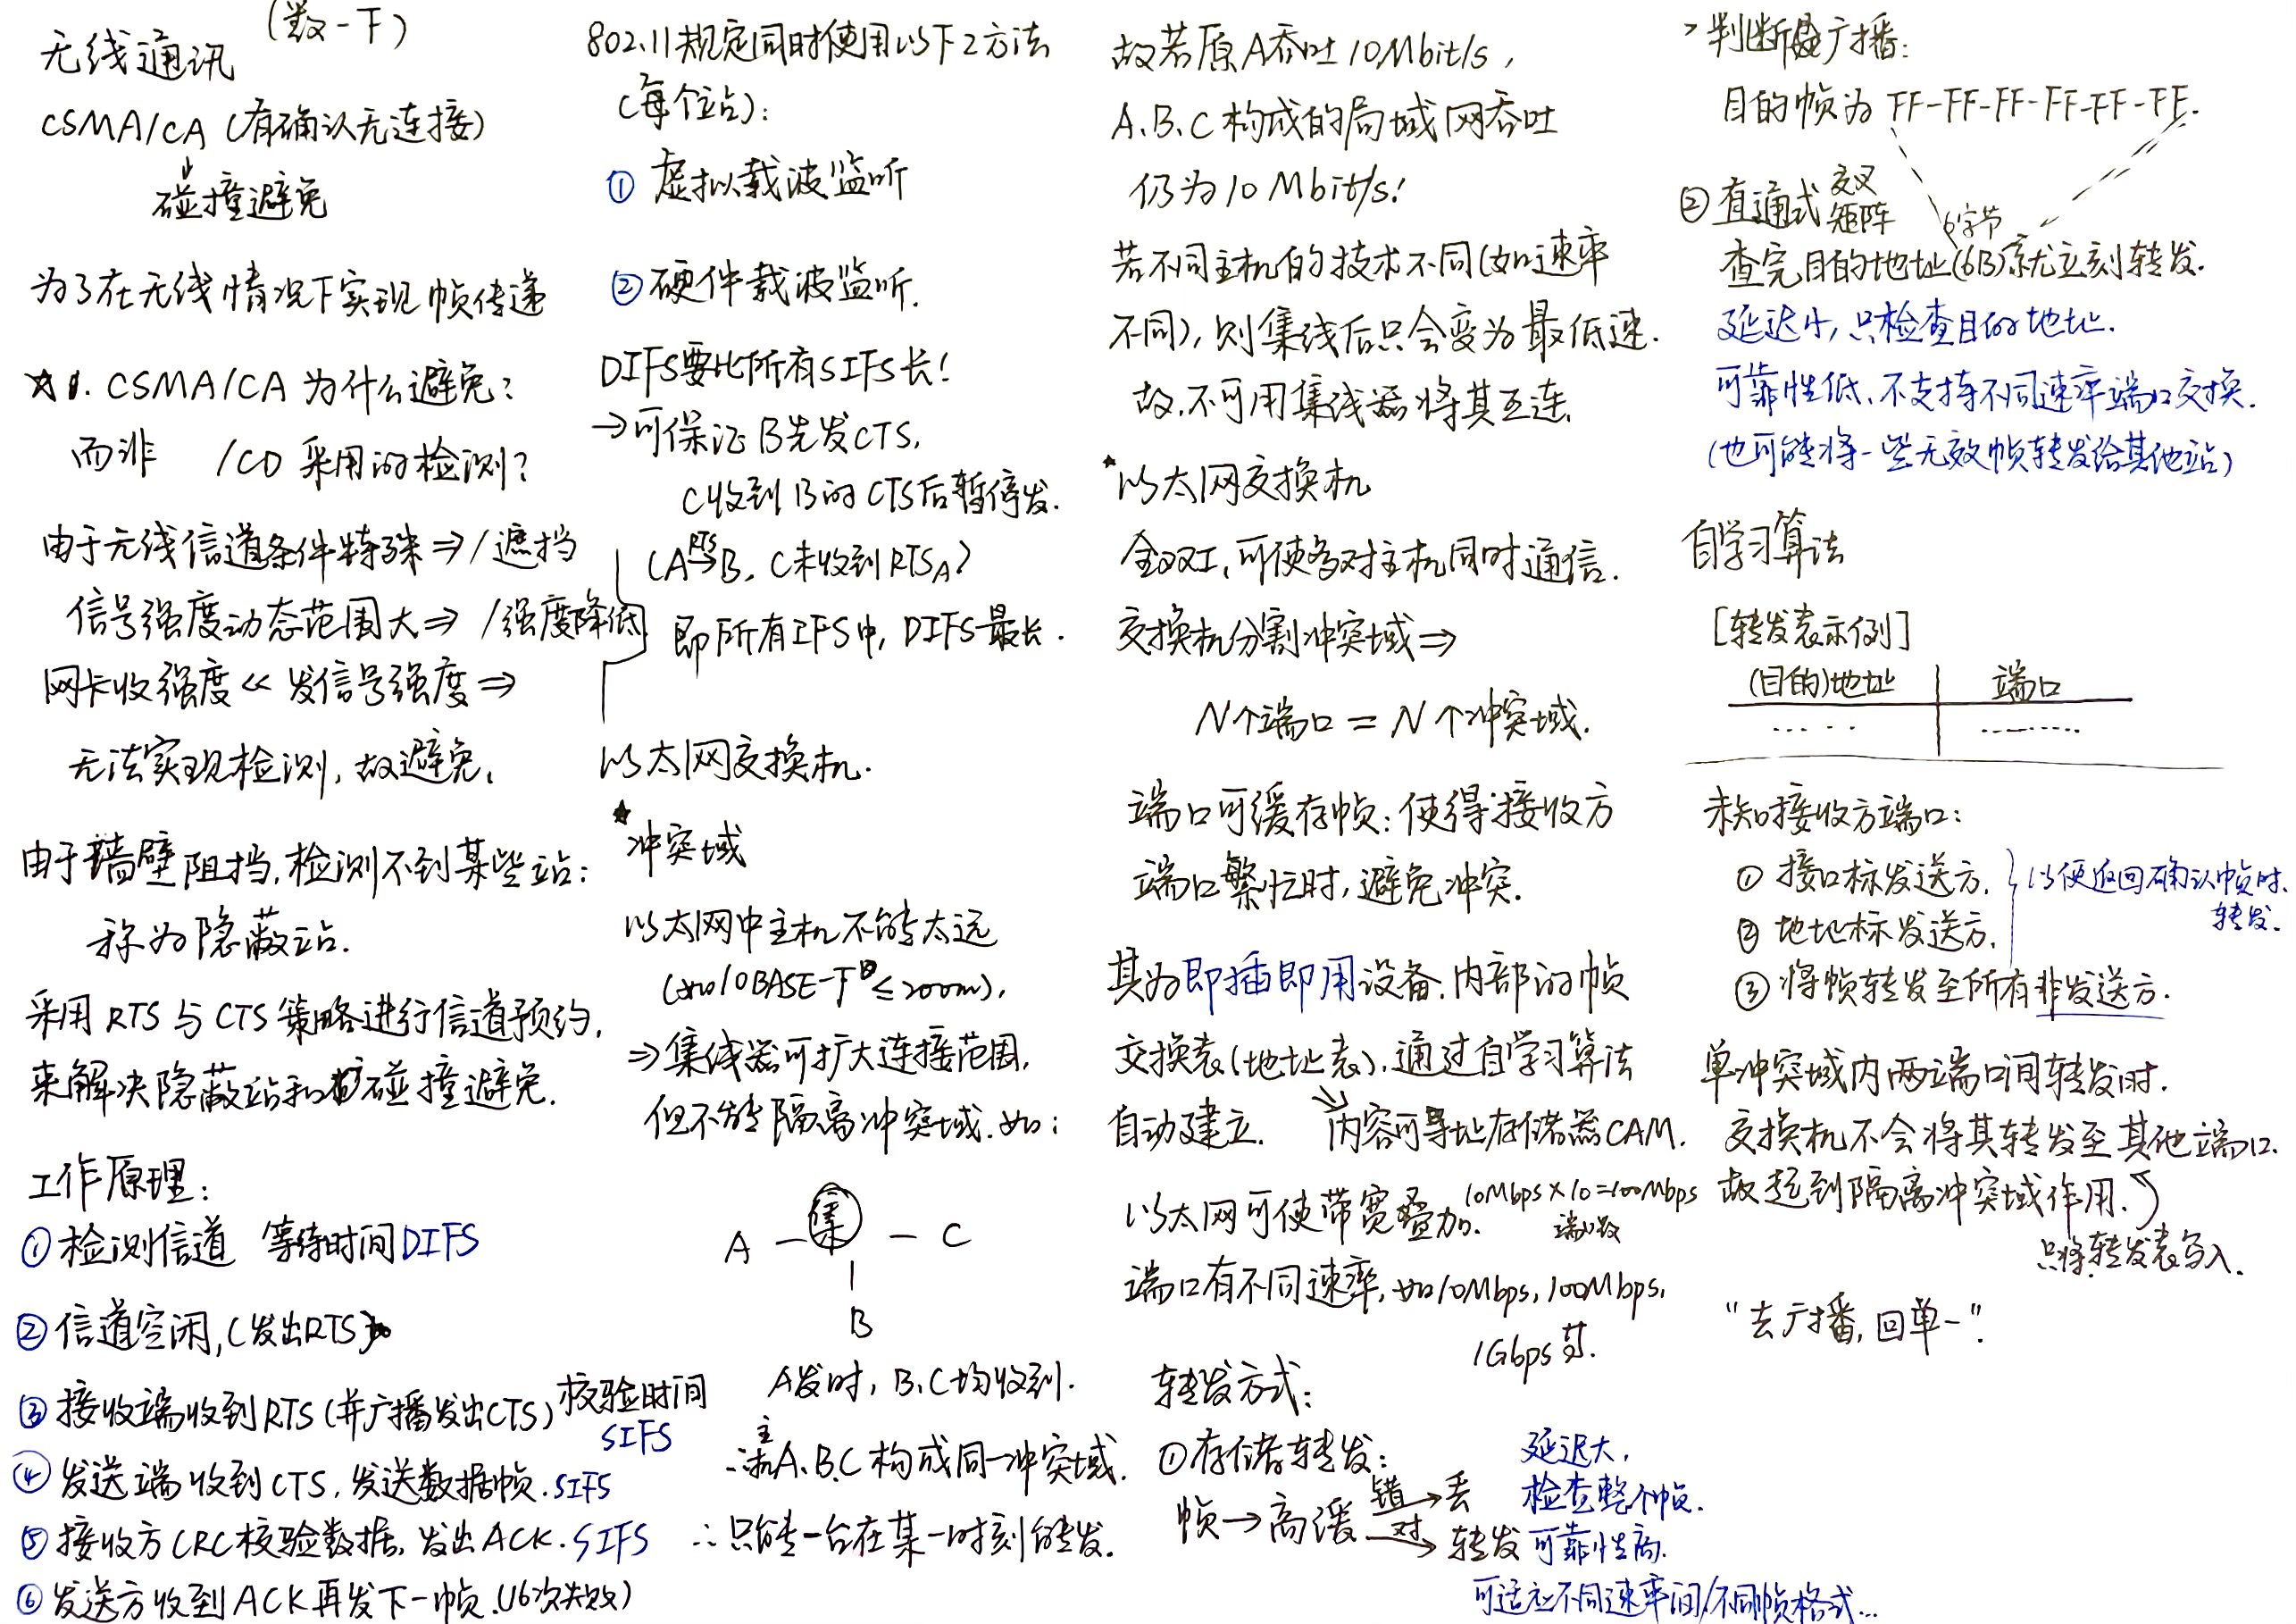 (数一下)
无线通讯
CSMA/CA (有确认无连接)
↓
碰撞避免
为了在无线情况下实现帧传递
★1. CSMA/CA 为什么避免?
而非 /CD 采用的检测?
由于无线信道条件特殊⇒/遮挡
信号强度动态范围大⇒ /强度降低
网卡收强度≪发信号强度⇒
无法实现检测,故避免.
由于墙壁阻挡,检测不到某些站:
称为隐蔽站.
采用RTS与CTS策略进行信道预约,
来解决隐蔽站和碰撞避免.
工作原理:
①检测信道 等待时间DIFS
②信道空闲,(发出RTS)
③接收端收到RTS(并广播发出CTS) 校验时间
SIFS
④发送端收到CTS,发送数据帧.SIFS
⑤接收方CRC校验数据,发出ACK.SIFS
⑥发送方收到ACK再发下一帧.(16次失败)
802.11规定同时使用以下2方法
(每个站):
① 虚拟载波监听
②硬件载波监听.
DIFS要比所有SIFS长!
→可保证B先发CTS,
C收到B的CTS后暂停发.
(A RTS→B, C未收到RTS_A)
即所有IFS中, DIFS最长.
以太网交换机.
★
冲突域
以太网中主机不能太远
(如10BASE-T ≤200m),
⇒集线器可扩大连接范围,
但不能隔离冲突域.如:
A — 集 — C
|
B
A发时, B、C均收到.
∴主机A、B、C构成同一冲突域.
∴只能一台在某一时刻能发.
故若原A吞吐10Mbit/s,
A、B、C构成的局域网吞吐
仍为10Mbit/s!
若不同主机的技术不同(如速率
不同),则集线后只会变为最低速.
故,不可用集线器将其互连.
*以太网交换机
全双工,可使多对主机同时通信.
交换机分割冲突域⇒
N个端口=N个冲突域.
端口可缓存帧:使得接收方
端口繁忙时,避免冲突.
其为即插即用设备.内部的帧
交换表(地址表),通过自学习算法
自动建立. ↘内容可寻址存储器CAM.
以太网可使带宽叠加. 10Mbps×10=100Mbps
端口数
端口有不同速率,如10Mbps,100Mbps,
1Gbps等.
转发方式:
①存储转发:
帧→高缓 错→丢
对→转发
延迟大,
检查整个帧.
可靠性高.
可适应不同速率间/不同帧格式...
>判断是广播:
目的帧为FF-FF-FF-FF-FF-FF.
②直通式 交叉矩阵 6字节
查完目的地址(6B)就立刻转发.
延迟小,只检查目的地址.
可靠性低、不支持不同速率端口交换.
(也可能将一些无效帧转发给其他站)
自学习算法
[转发表示例]
(目的)地址 | 端口
..... | ........
未知接收方端口:
① 接口标发送方.
② 地址标发送方.
} 以便返回确认帧时.
转发.
③将帧转发至所有非发送方.
单冲突域内两端口间转发时.
交换机不会将其转发至其他端口.
故起到隔离冲突域作用.
只将转发表写入.
"去广播,回单一".